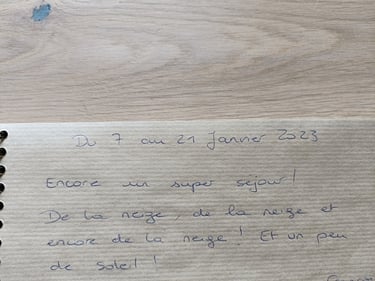 Du 7 au 21 Janvier 2023
Encore un super séjour!
De la neige, de la neige et
encore de la neige! Et un peu
de soleil!